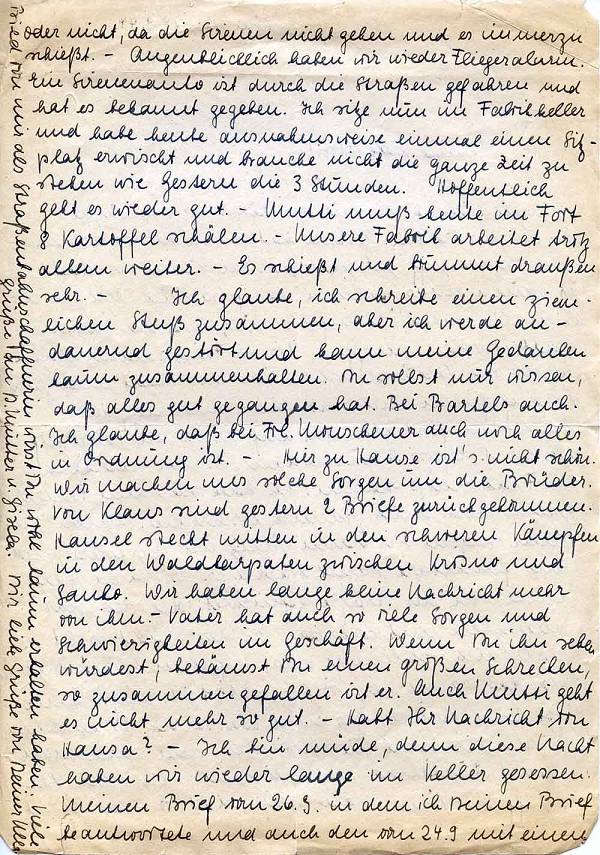 oder nicht, da die Sirenen nicht gehen und es immerzu
schießt. - Augenblicklich haben wir wieder Fliegeralarm.
Ein Sirenenauto ist durch die Straßen gefahren und
hat es bekannt gegeben. Ich sitze nun im Fabrikkeller
und habe heute ausnahmsweise einmal einen Sitz-
platz erwischt und brauche nicht die ganze Zeit zu
stehen wie gestern die 3 Stunden. Hoffentlich
geht es wieder gut. - Mutti muß heute im Fort
Kartoffel schälen. - Unsere Fabrik arbeitet trotz
allem weiter. - Es schießt und brummt draußen
sehr. - Ich glaube, ich schreibe einen ziem-
lichen Stuß zusammen, aber ich werde an-
dauernd gestört und kann meine Gedanken
kaum zusammenhalten. Du sollst nur wissen,
daß alles gut gegangen hat. Bei Bartels auch.
Ich glaube, daß bei Frl. Monschener auch noch alles
in Ordnung ist. - Hier zu Hause ist's nicht schön.
Wir machen uns solche Sorgen um die Brüder.
Von Klaus sind gestern 2 Briefe zurückgekommen.
Hansel steckt mitten in den schweren Kämpfen
in den Waldkarpaten zwischen Krosno und
Sanko. Wir haben lange keine Nachricht mehr
von ihm. - Vater hat auch so viele Sorgen und
Schwierigkeiten im Geschäft. Wenn Du ihn sehen
würdest, bekämst Du einen großen Schrecken,
so zusammengefallen ist er. Auch Mutti geht
es nicht mehr so gut. - Habt Ihr Nachricht von
Hansa? - Ich bin müde, denn diese Nacht
haben wir wieder lange im Keller gesessen.
Meinen Brief vom 26.9. in dem ich Deinen Brief
beantwortete und auch den vom 24.9 mit einem
Bild von mir als Straßenbahnschaffnerin wirst Du wohl kaum erhalten haben. Viele
Grüße an D. Mutter u. Gisela. Dir liebe Grüße von Deiner